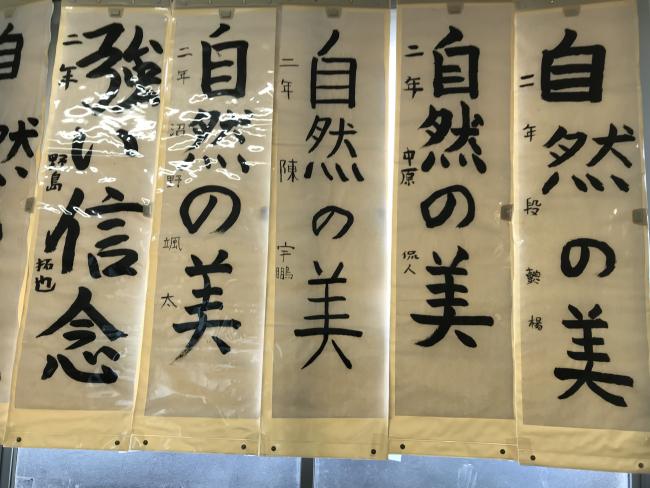 自然の美
二年 段
自然の美
二年 中原 侃人
自然の美
二年 陳 宇鵬
自然の美
二年 沼野 颯太
強い信念
二年 野島 拓也
自然